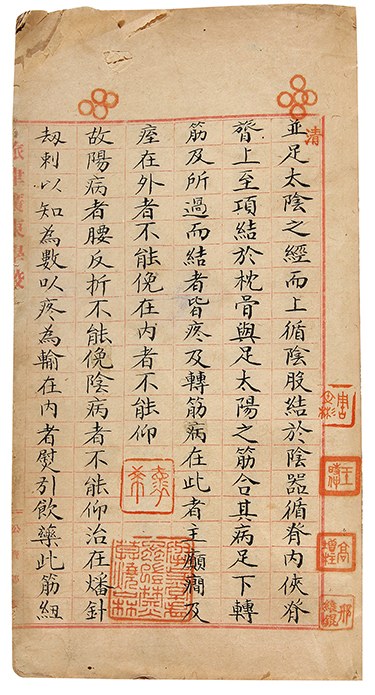 清
並足太陰之經而上循陰股結於陰器循脊內俠脊
膂上至項結於枕骨與足太陽之筋合其病足下轉
筋及所過而結者皆疼及轉筋病在此者主癲癇及
痓在外者不能俛在內者不能仰
故陽病者腰反折不能俛陰病者不能仰治在燔針
刼刺以知為數以疼為輸在內者熨引飲藥此筋紐
旅津廣東學校